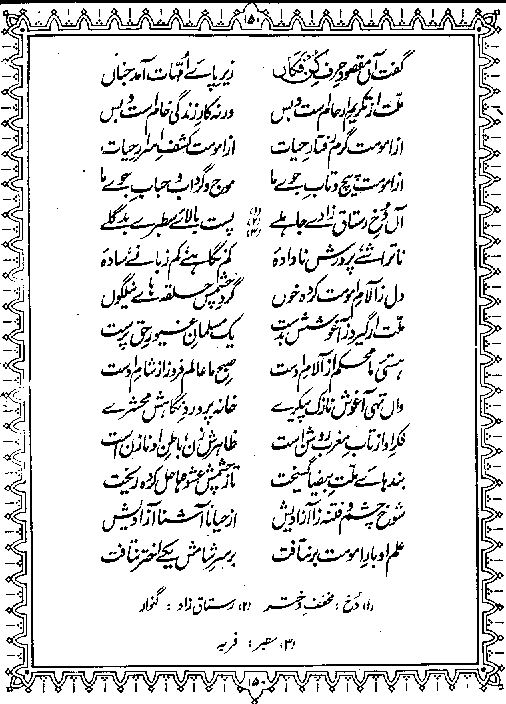 ۱۵۰
گفت آن مقصودِ حرفِ کن فکان زیر پاے اُمّہات آمد جناں
ملّت از تکریمِ ارحام است و بس ورنہ کارِ زندگی خام است و بس
از امومت گرم رفتارِ حیات از امومت کشفِ اسرارِ حیات
از امومت پیچ و تابِ جوے ما موج و گرداب و حبابِ جوے ما
آں دُخِ رستاق زادے جاہلے (۱) (۲) (۳) پست بالاے سطبرے بدگلے
ناتراشے پرورش نادادہ کم نگاہے کم زبانے سادہ
دل ز آلامِ امومت کردہ خوں گردِ چشمش حلقہ ہاے نیلگوں
ملّت ار گیرد ز آغوشش بدست یک مسلمانِ غیور و حق پرست
ہستیِ ما محکم از آلامِ اوست صبحِ ما عالم فروز از شامِ اوست
واں تہی آغوش نازک پیکرے خانہ پروردِ نگاہش محشرے
فکرِ او از تابِ مغرب روشن است ظاہرش زن باطنِ او نازن است
بندہاے ملّتِ بیضا گسیخت تا ز چشمش عشوہ ہا حل کردہ ریخت
شوخ چشم و فتنہ زا آزادیش از حیا ناآشنا آزادیش
علمِ او بارِ امومت برنتافت برسرِ شامش یکے اختر نتافت
(۱) دُخ : مخففِ دختر (۲) رستاق زاد : گنوار
(۳) سطبر : فربہ
۱۵۰